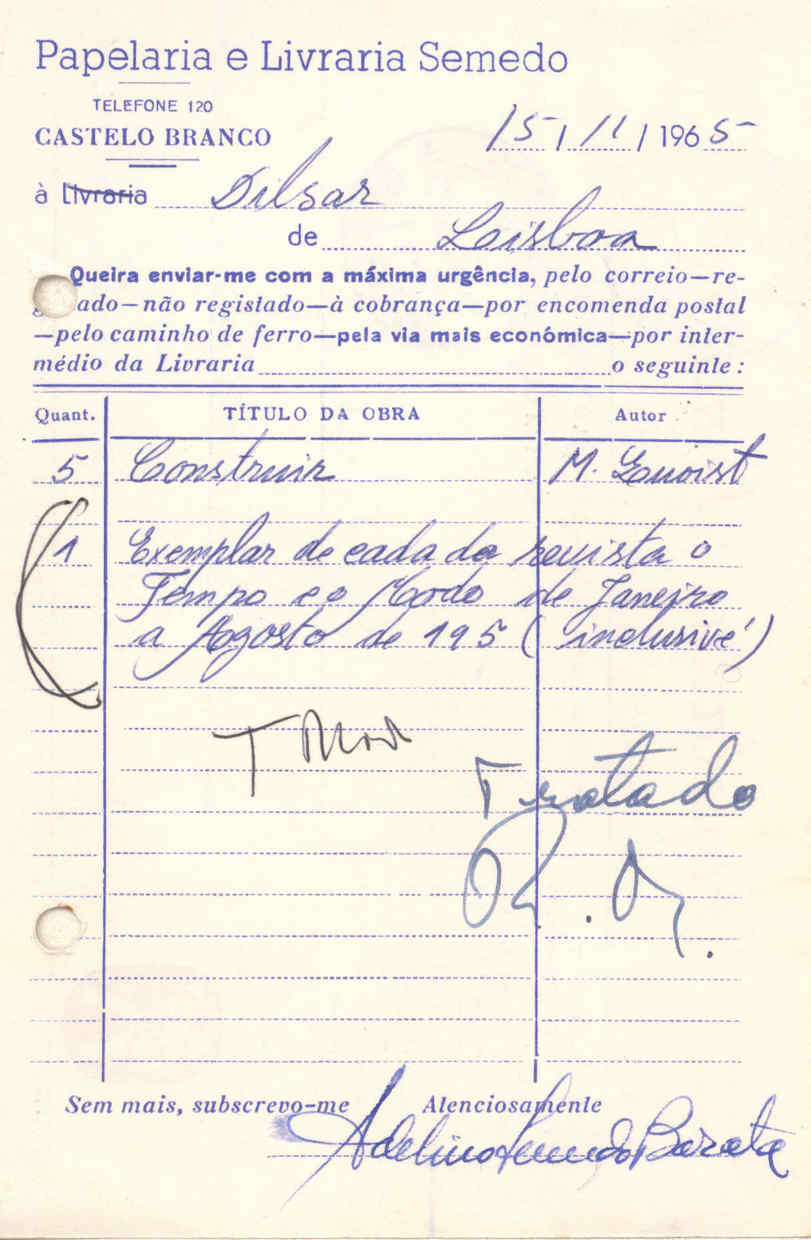 Papelaria e Livraria Semedo
TELEFONE 120
CASTELO BRANCO
15/11/1965
à Livraria Dilsar
de Leisboa
Queira enviar-me com a máxima urgência, pelo correio—re-
ado—não registado—à cobrança—por encomenda postal
—pelo caminho de ferro—pela via mais económica—por inter-
médio da Livraria o seguinte:
Quant. TÍTULO DA OBRA Autor
5 Construir M.
1 Exemplar de cada da revista o
Tempo e o Modo de Janeiro
a Agosto de 195 (inclusivé)
T Mod
Tratado
Sem mais, subscrevo-me Atenciosamente
Adelino Semedo Barata